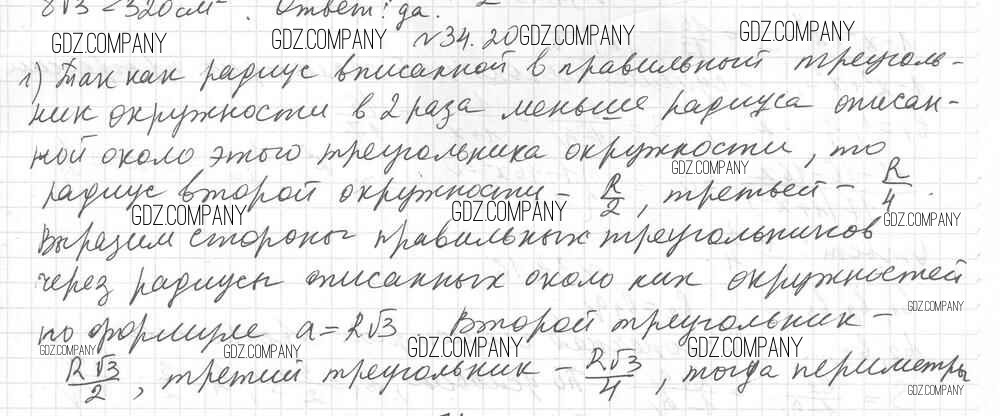 8√3 < 320см². Ответ: да.
GDZ.COMPANY GDZ.COMPANY №34.20 GDZ.COMPANY GDZ.COMPANY
1) Так как радиус вписанной в правильный треуголь-
ник окружности в 2 раза меньше радиуса описан-
ной около этого треугольника окружности, то
GDZ.COMPANY
радиус второй окружности – R/2, третьей – R/4.
GDZ.COMPANY GDZ.COMPANY GDZ.COMPANY
Выразим стороны правильных треугольников
через радиусы описанных около них окружностей
GDZ.COMPANY
по формуле a = R√3. Второй треугольник –
GDZ.COMPANY GDZ.COMPANY GDZ.COMPANY GDZ.COMPANY
R√3/2, третий треугольник – R√3/4, тогда периметры
GDZ.COMPANY